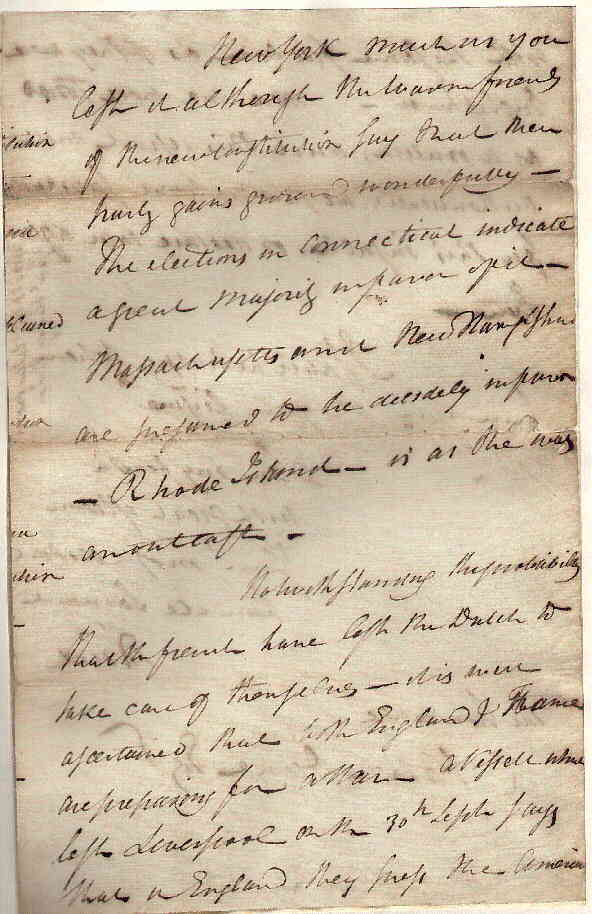 New York much as you
left it although the warm friends
of the new Constitution say that their
party gains ground wonderfully —
The elections in Connecticut indicate
a great majority in favor of it —
Massachusetts and New Hampshire
are presumed to be decidely in favor
— Rhode Island — is as she was
an outcast —
Notwithstanding the probability
that the french have left the Dutch to
take care of themselves — it is
ascertained that both England & France
are preparing for a War — a Vessell which
left Liverpool on the 30th Septr says
that in England they press the America